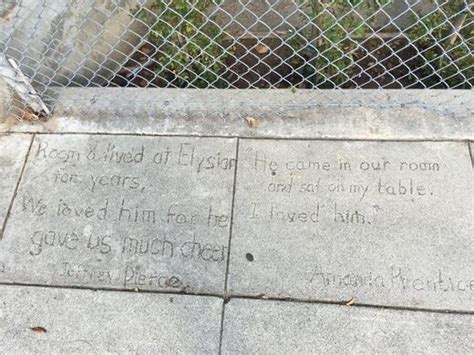 Room 8 lived at Elysian
for years,
We loved him for he
gave us much cheer
Jeffrey Pierce
"He came in our room
and sat on my table.
I loved him."
Amanda Prentice